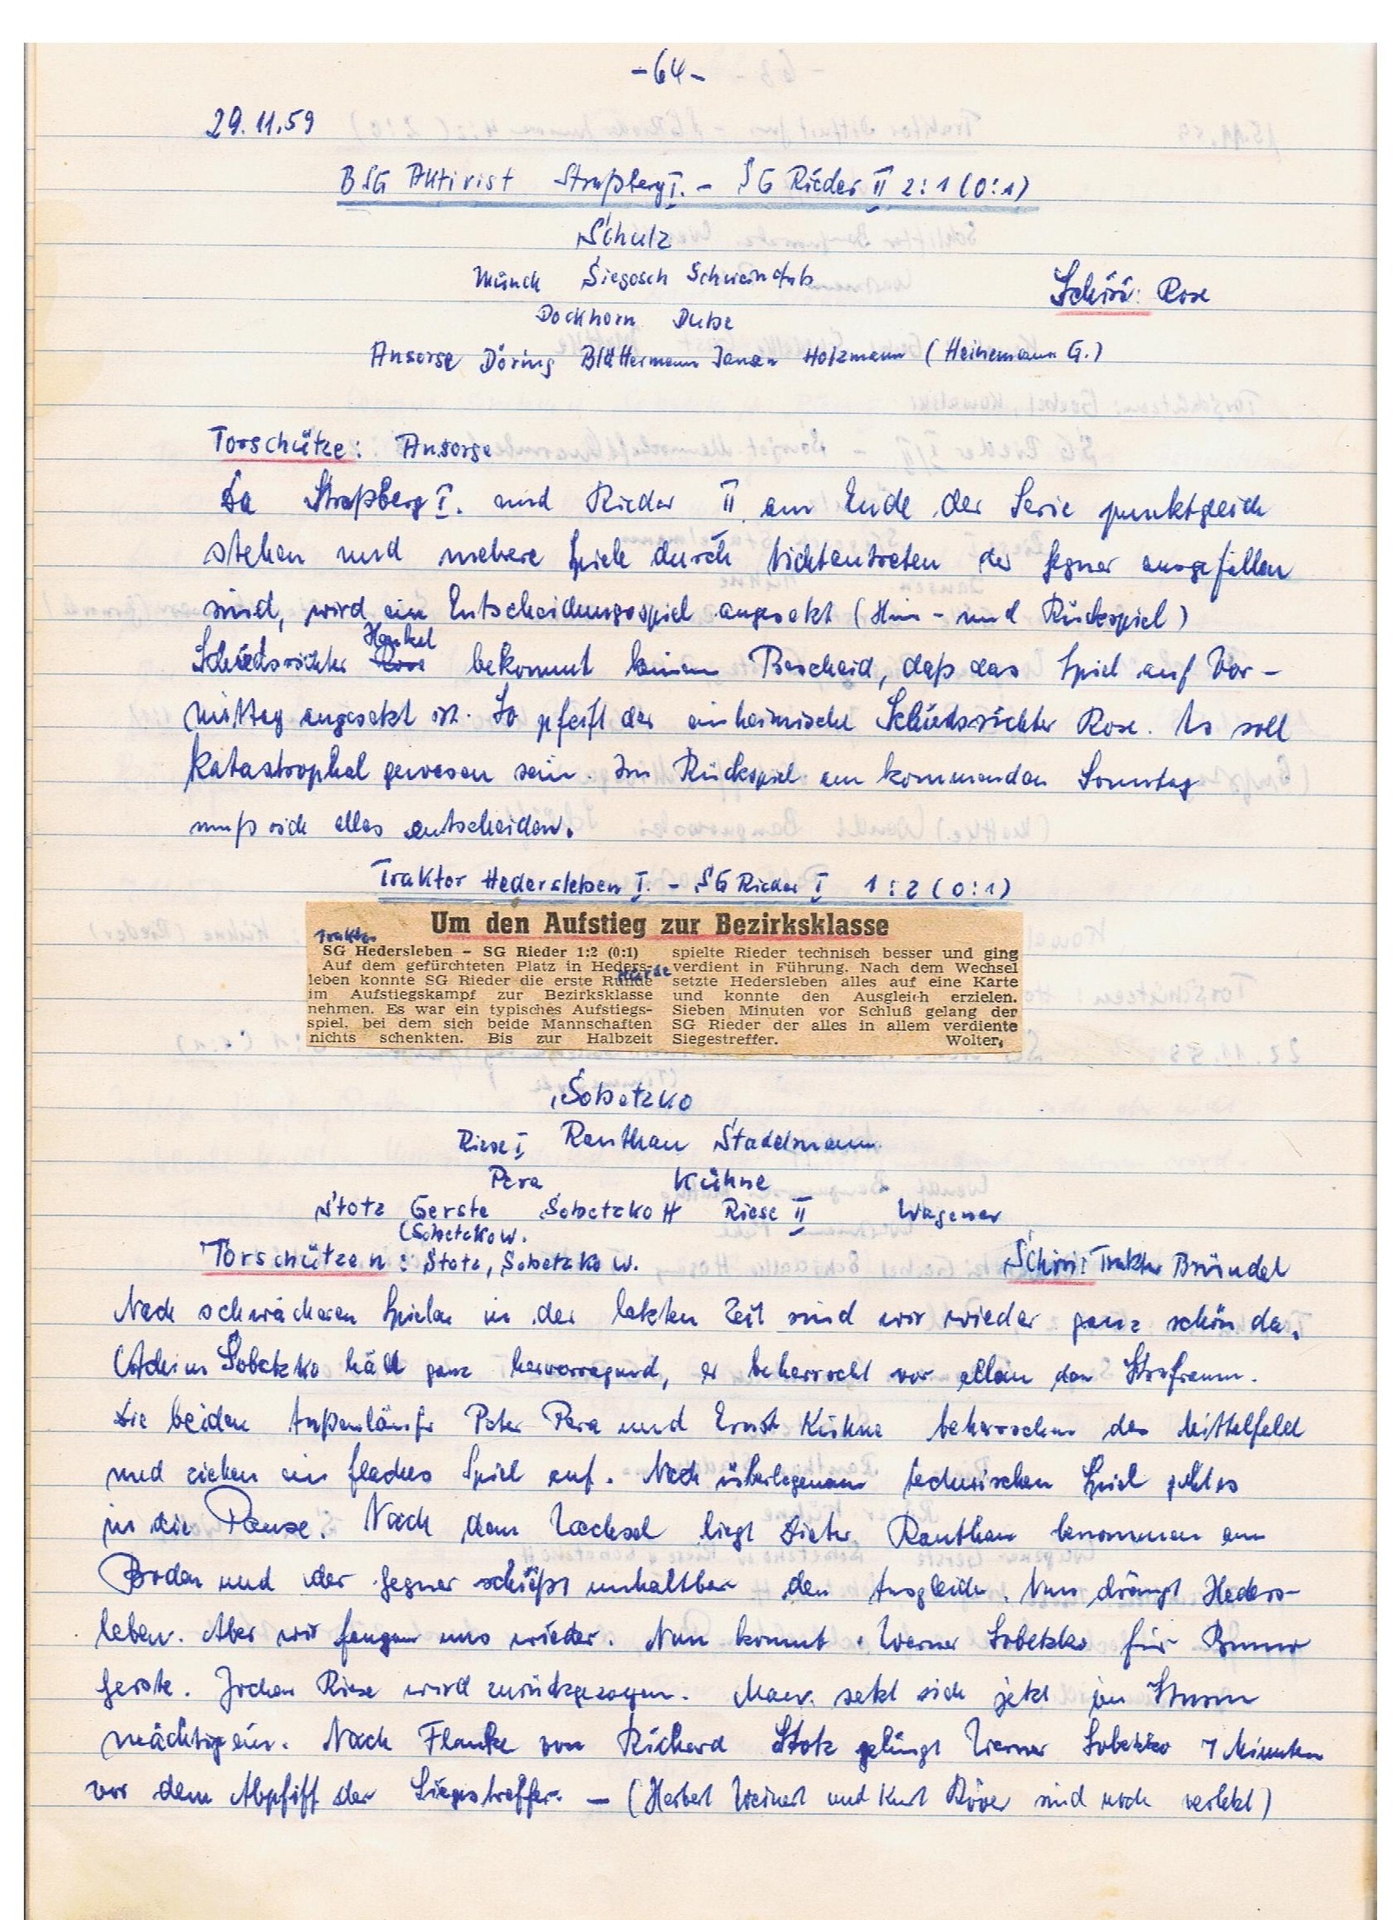 -64-
29.11.59
BSG Aktivist Straßberg I. - SG Rieder II 2:1 (0:1)
Schulz
Münch Siegosch Schweinefuß
Schiri: Rose
Dockhorn Dube
Ansorge Döring Blättermann Jansen Holzmann (Heinemann G.)
Torschütze: Ansorge
Da Straßberg I. und Rieder II am Ende der Serie punktgleich
stehen und mehere Spiele durch Nichtantreten der Gegner ausgefallen
sind, wird ein Entscheidungsspiel angesetzt (Hin- und Rückspiel)
Henkel
Schiedsrichter Rose bekommt keinen Bescheid, daß das Spiel auf Vor-
mittag angesetzt ist. So pfeift der einheimische Schiedsrichter Rose. Es soll
katastrophal gewesen sein. Im Rückspiel am kommenden Sonntag
muß sich alles entscheiden.
Traktor Hedersleben I. - SG Rieder I 1:2 (0:1)
Um den Aufstieg zur Bezirksklasse
Traktor
SG Hedersleben - SG Rieder 1:2 (0:1)
Auf dem gefürchteten Platz in Heders-
leben konnte SG Rieder die erste Runde
Hürde
im Aufstiegskampf zur Bezirksklasse
nehmen. Es war ein typisches Aufstiegs-
spiel, bei dem sich beide Mannschaften
nichts schenkten. Bis zur Halbzeit
spielte Rieder technisch besser und ging
verdient in Führung. Nach dem Wechsel
setzte Hedersleben alles auf eine Karte
und konnte den Ausgleich erzielen.
Sieben Minuten vor Schluß gelang der
SG Rieder der alles in allem verdiente
Siegestreffer. Wolter,
Sobetzko
Riese I Ranthan Stadelmann
Pera Kühne
Stotz Gerste Sobetzko H Riese II Wagener
(Sobetzko W.
Torschützen: Stotz, Sobetzko W.
Schiri: Traktor Bründel
Nach schwächeren Spielen in der letzten Zeit sind wir wieder ganz schön da.
Achim Sobetzko hält ganz hervorragend, er beherrscht vor allem den Strafraum.
Die beiden Außenläufer Peter Pera und Ernst Kühne beherrschen das Mittelfeld
und ziehen ein flaches Spiel auf. Nach überlegenem technischen Spiel geht es
in die Pause. Nach dem Wechsel liegt Dieter Ranthan benommen am
Boden und der Gegner schießt unhaltbar den Ausgleich. Nun drängt Heders-
leben. Aber wir fangen uns wieder. Nun kommt Werner Sobetzko für Bruno
Gerste. Jochen Riese wird zurückgezogen. Man setzt sich jetzt im Sturm
mächtig ein. Nach Flanke von Richard Stotz gelingt Werner Sobetzko 7 Minuten
vor dem Abpfiff der Siegestreffer. - (Herbert Weinert und Kurt Röver sind noch verletzt)